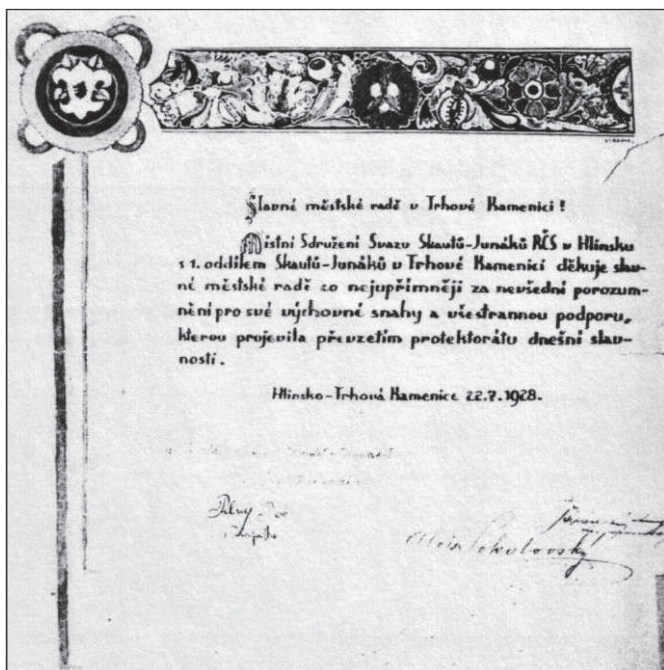 Slavné městské radě v Trhové Kamenici!
Místní Sdružení Svazu Skautů-Junáků RČS v Hlinsku
s 1. oddílem Skautů-Junáků v Trhové Kamenici děkuje slav-
né městské radě co nejupřímněji za nevšední porozum-
nění pro své výchovné snahy a všestrannou podporu,
kterou projevila převzetím protektorátu dnešní slav-
nosti.
Hlinsko-Trhová Kamenice 22.7.1928.
Sokolovský